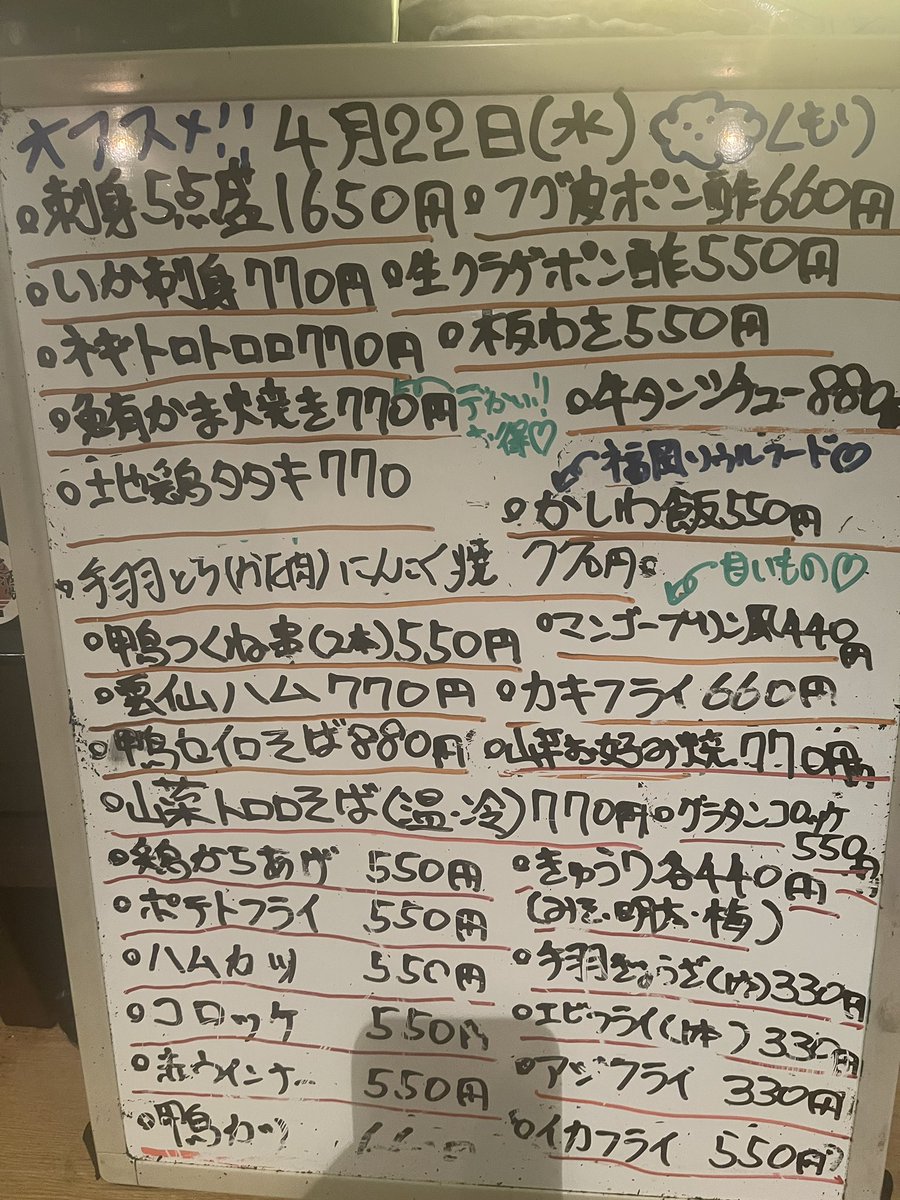 オススメ!! 4月22日(水) くもり
刺身5点盛1650円 フグ皮ポン酢660円
いか刺身770円 生クラゲポン酢550円
ネギトロトロロ770円 板わさ550円
かま焼き770円 デカい!! 牛タンシチュー880
地鶏タタキ770 福岡ソウルフード♡
かしわ飯550円
手羽とろ にんにく焼 770円 甘いもの♡
鴨つくね串(2本)550円 マンゴープリン風440円
雲仙ハム770円 カキフライ660円
鴨セイロそば880円 山菜お好み焼770円
山菜トロロそば(温・冷)770円 グラタンコロッケ
550円
鶏からあげ 550円 きゅうり各440円
ポテトフライ 550円 (みそ・明太・梅)
ハムカツ 550円 手羽ぎょうざ 330円
コロッケ 550円 エビフライ 330円
赤ウインナー 550円 アジフライ 330円
鴨カツ イカフライ 550円